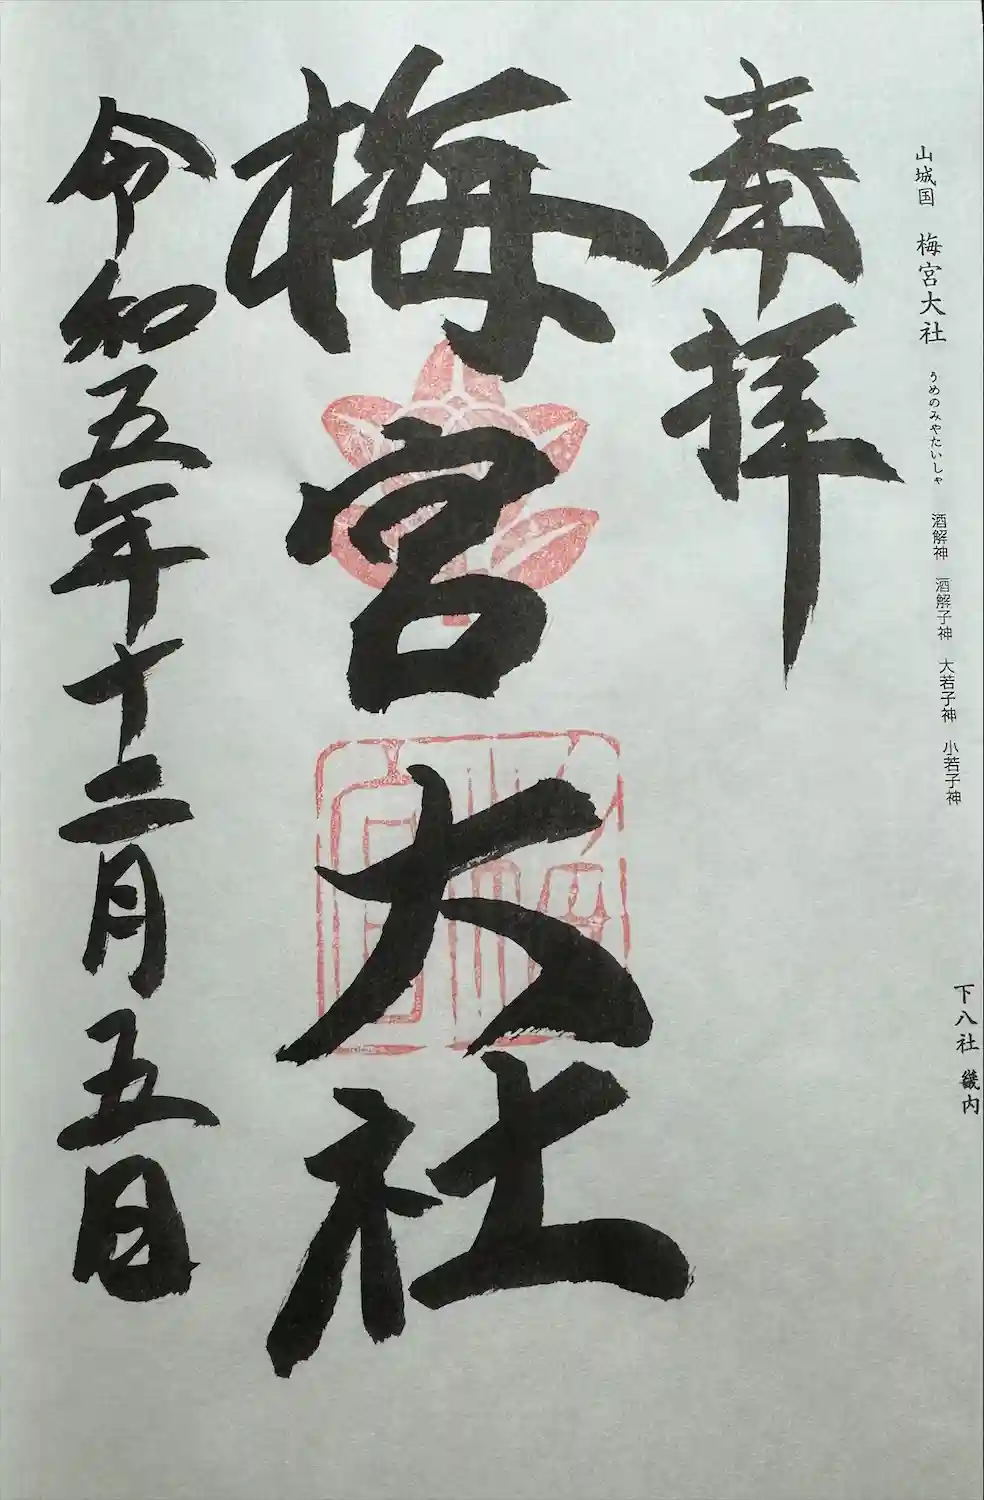 山城国 梅宮大社 うめのみやたいしゃ 酒解神 酒解子神 大若子神 小若子神
下八社 畿内
奉拝
梅宮大社
令和五年十二月五日